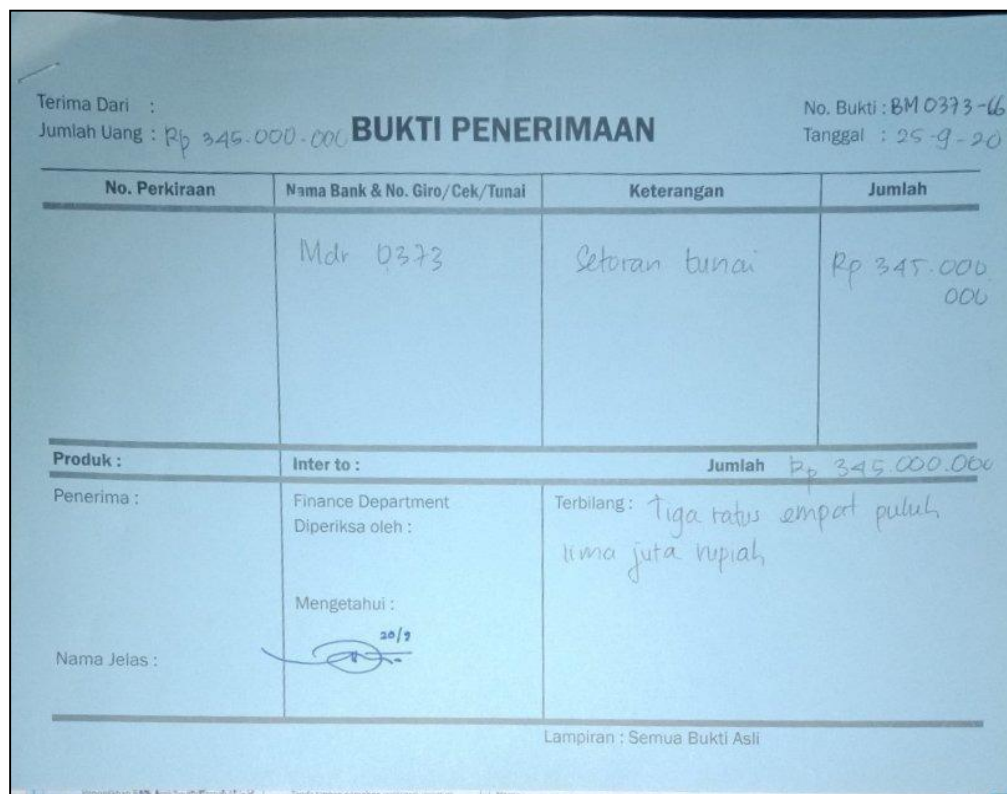 Terima Dari :
No. Bukti : BM 0373-66
Jumlah Uang : Rp 345.000.000
BUKTI PENERIMAAN
Tanggal : 25-9-20
No. Perkiraan
Nama Bank & No. Giro/Cek/Tunai
Keterangan
Jumlah
Mdr 0373
Setoran tunai
Rp 345.000
000
Produk :
Inter to :
Jumlah Rp 345.000.000
Penerima :
Finance Department
Diperiksa oleh :
Terbilang : Tiga ratus empat puluh
lima juta rupiah
Mengetahui :
20/9
Nama Jelas :
Lampiran : Semua Bukti Asli